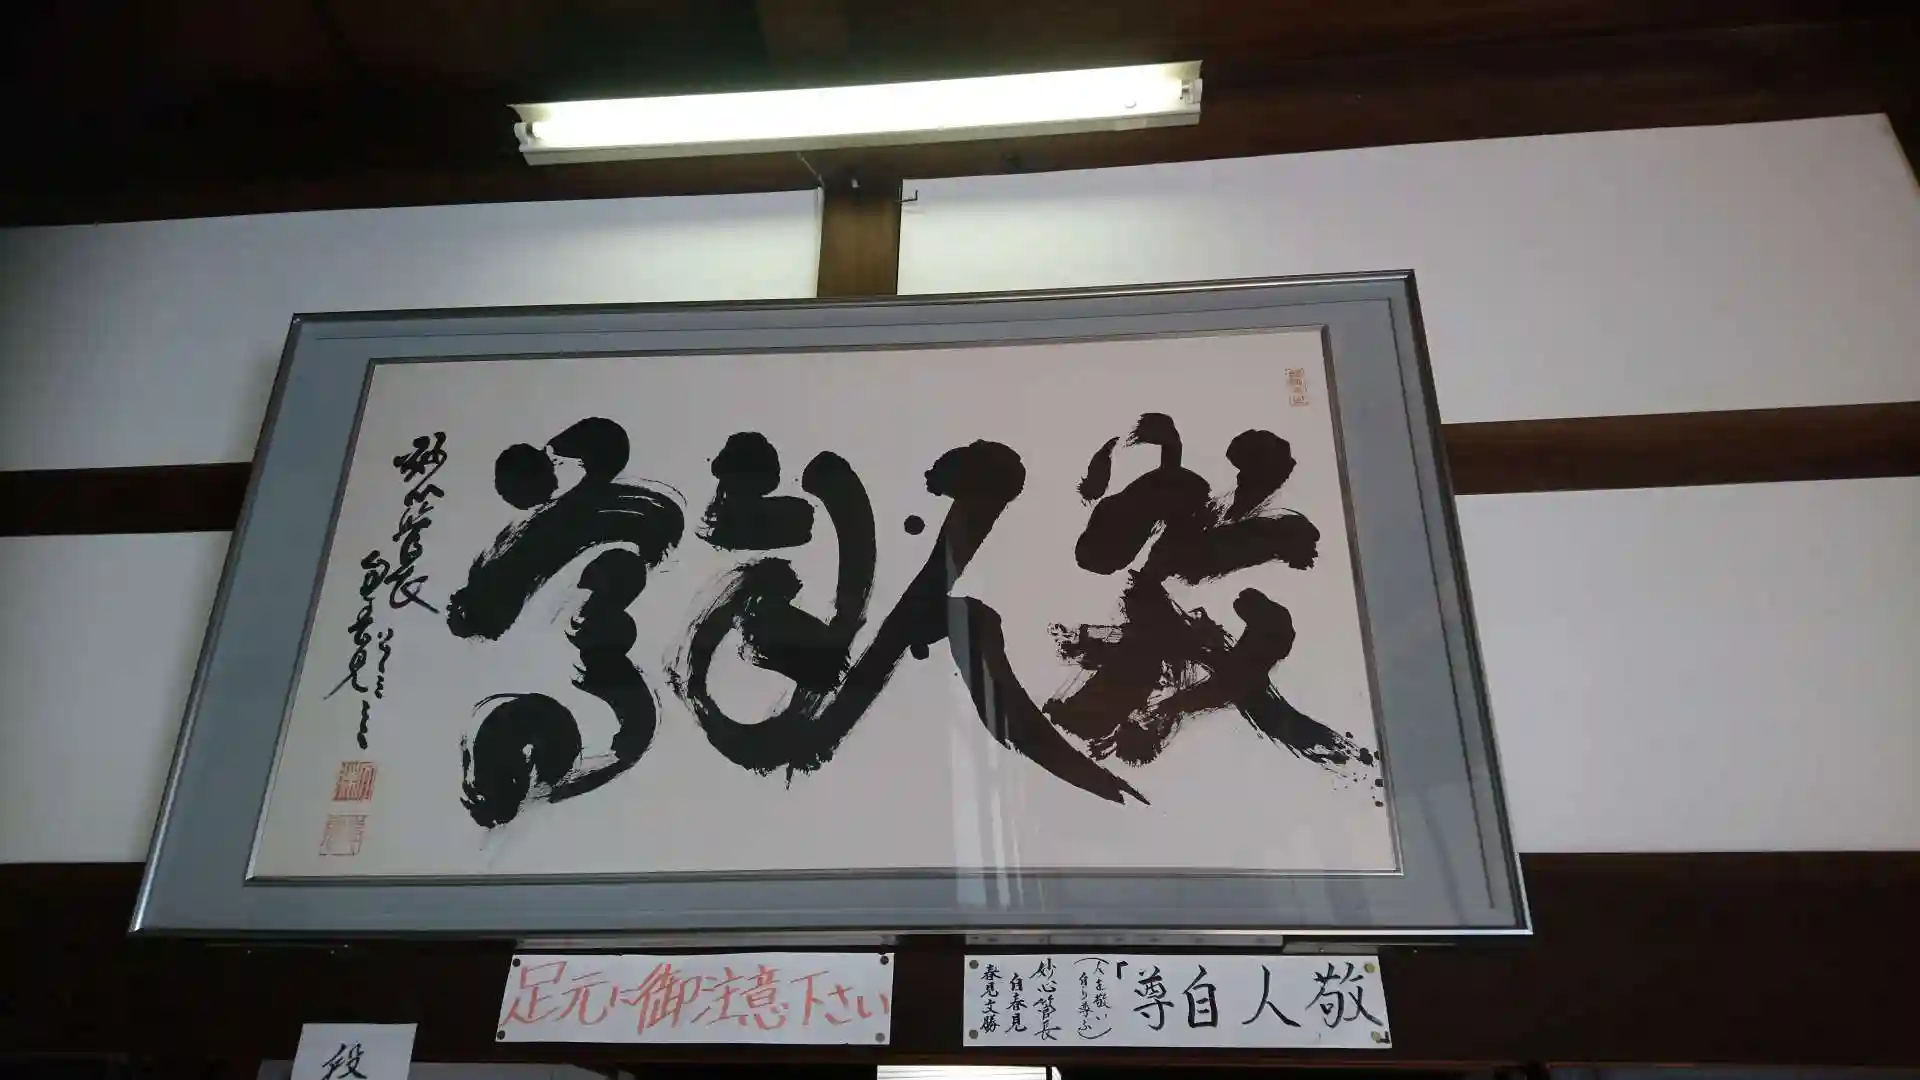 敬人自尊
妙心管長
自春見
足元に御注意下さい
敬人自尊」
(人を敬い
自り尊ぶ)
妙心管長
自春見
春見文勝
段